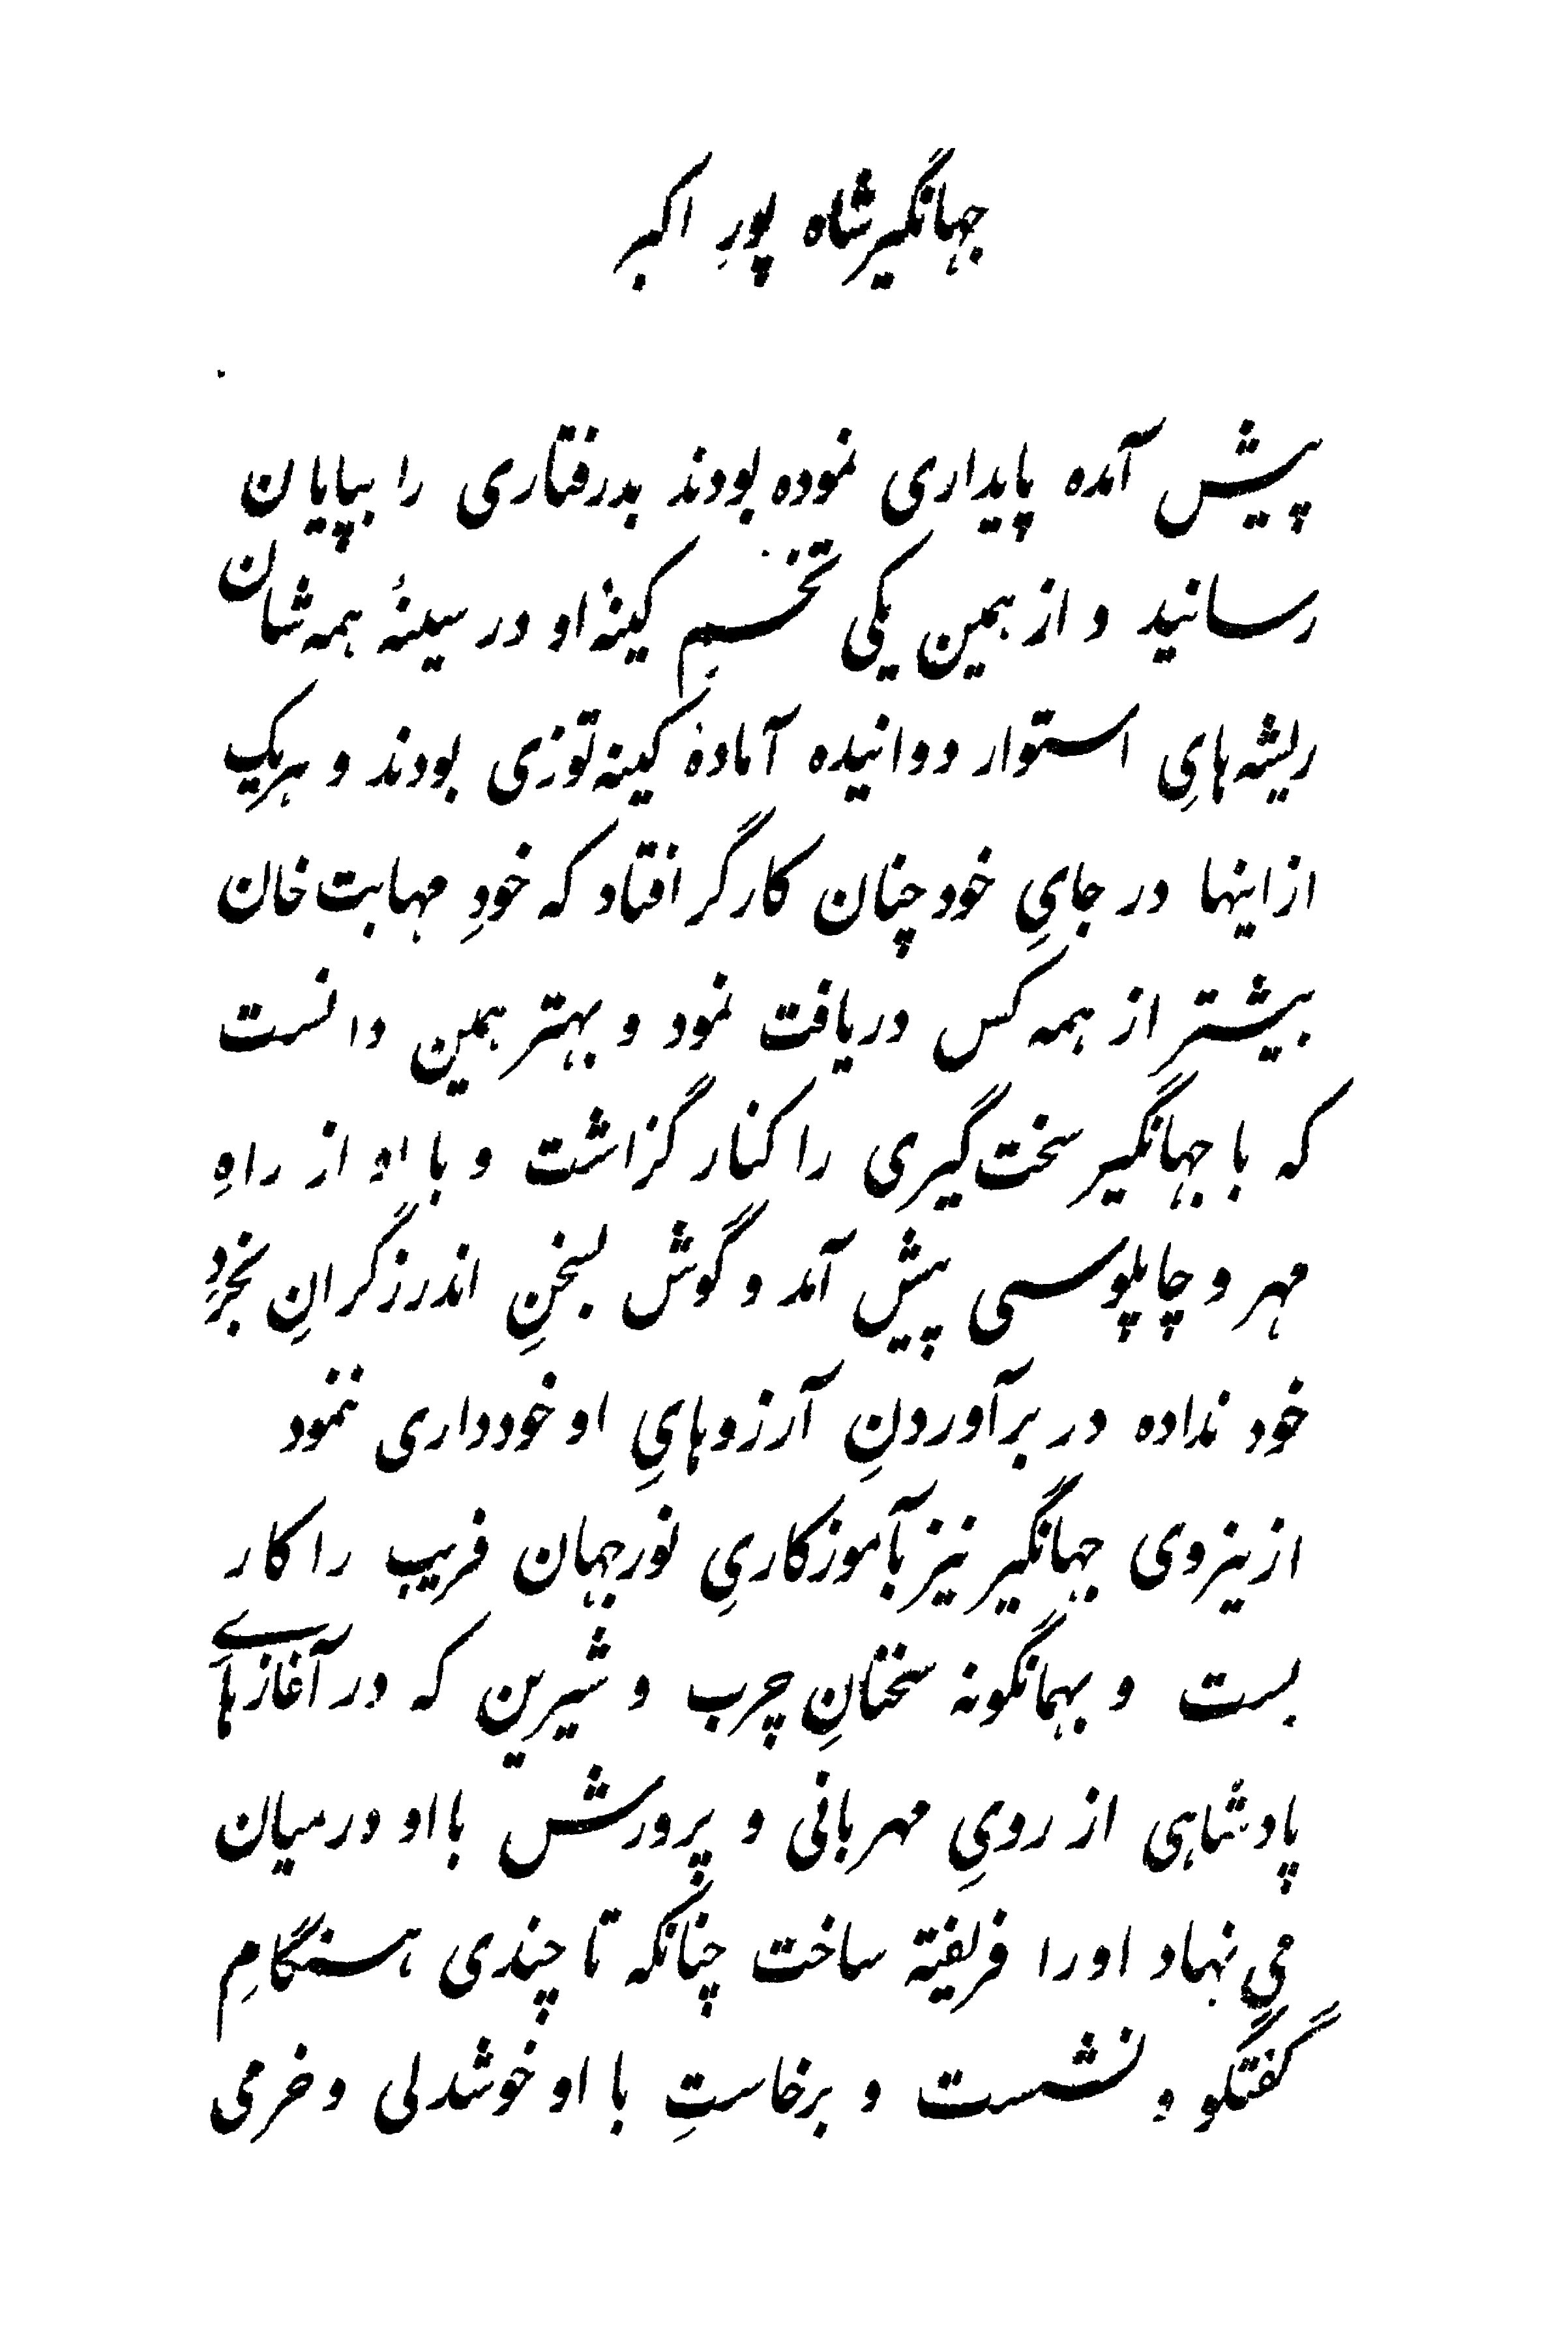 جهانگیرشاه پورِ اکبر
پیش آمده پایداری نموده بودند بدرفتاری را بپایان
رسانید و از همین یکی تخمِ کینهٔ او در سینهٔ همه‌شان
ریشه‌هایِ استوار دوانیده آمادهٔ کینه‌توزی بودند و هریک
ازاینها در جایِ خود چنان کارگر افتاد که خودِ مهابت‌خان
بیشتر از همه کس دریافت نمود و بهتر همین دانست
که با جهانگیر سخت‌گیری را کنار گزاشت و با او از راهِ
مهر و چاپلوسی پیش آمد و گوش بسخنِ اندرزگرانِ بخردِ
خود نداده در برآوردنِ آرزوهایِ او خودداری ننمود
ازینروی جهانگیر نیز بآموزکاریِ نورجهان فریب را کار
بست و بهمانگونه سخنانِ چرب و شیرین که در آغازهاے
پادشاهی از رویِ مهربانی و پرورش با او درمیان
می نهاد اورا فریفته ساخت چنانکه تا چندی هنگامِ
گفتگو و نشست و برخاستِ با او خوشدلی و خرمی